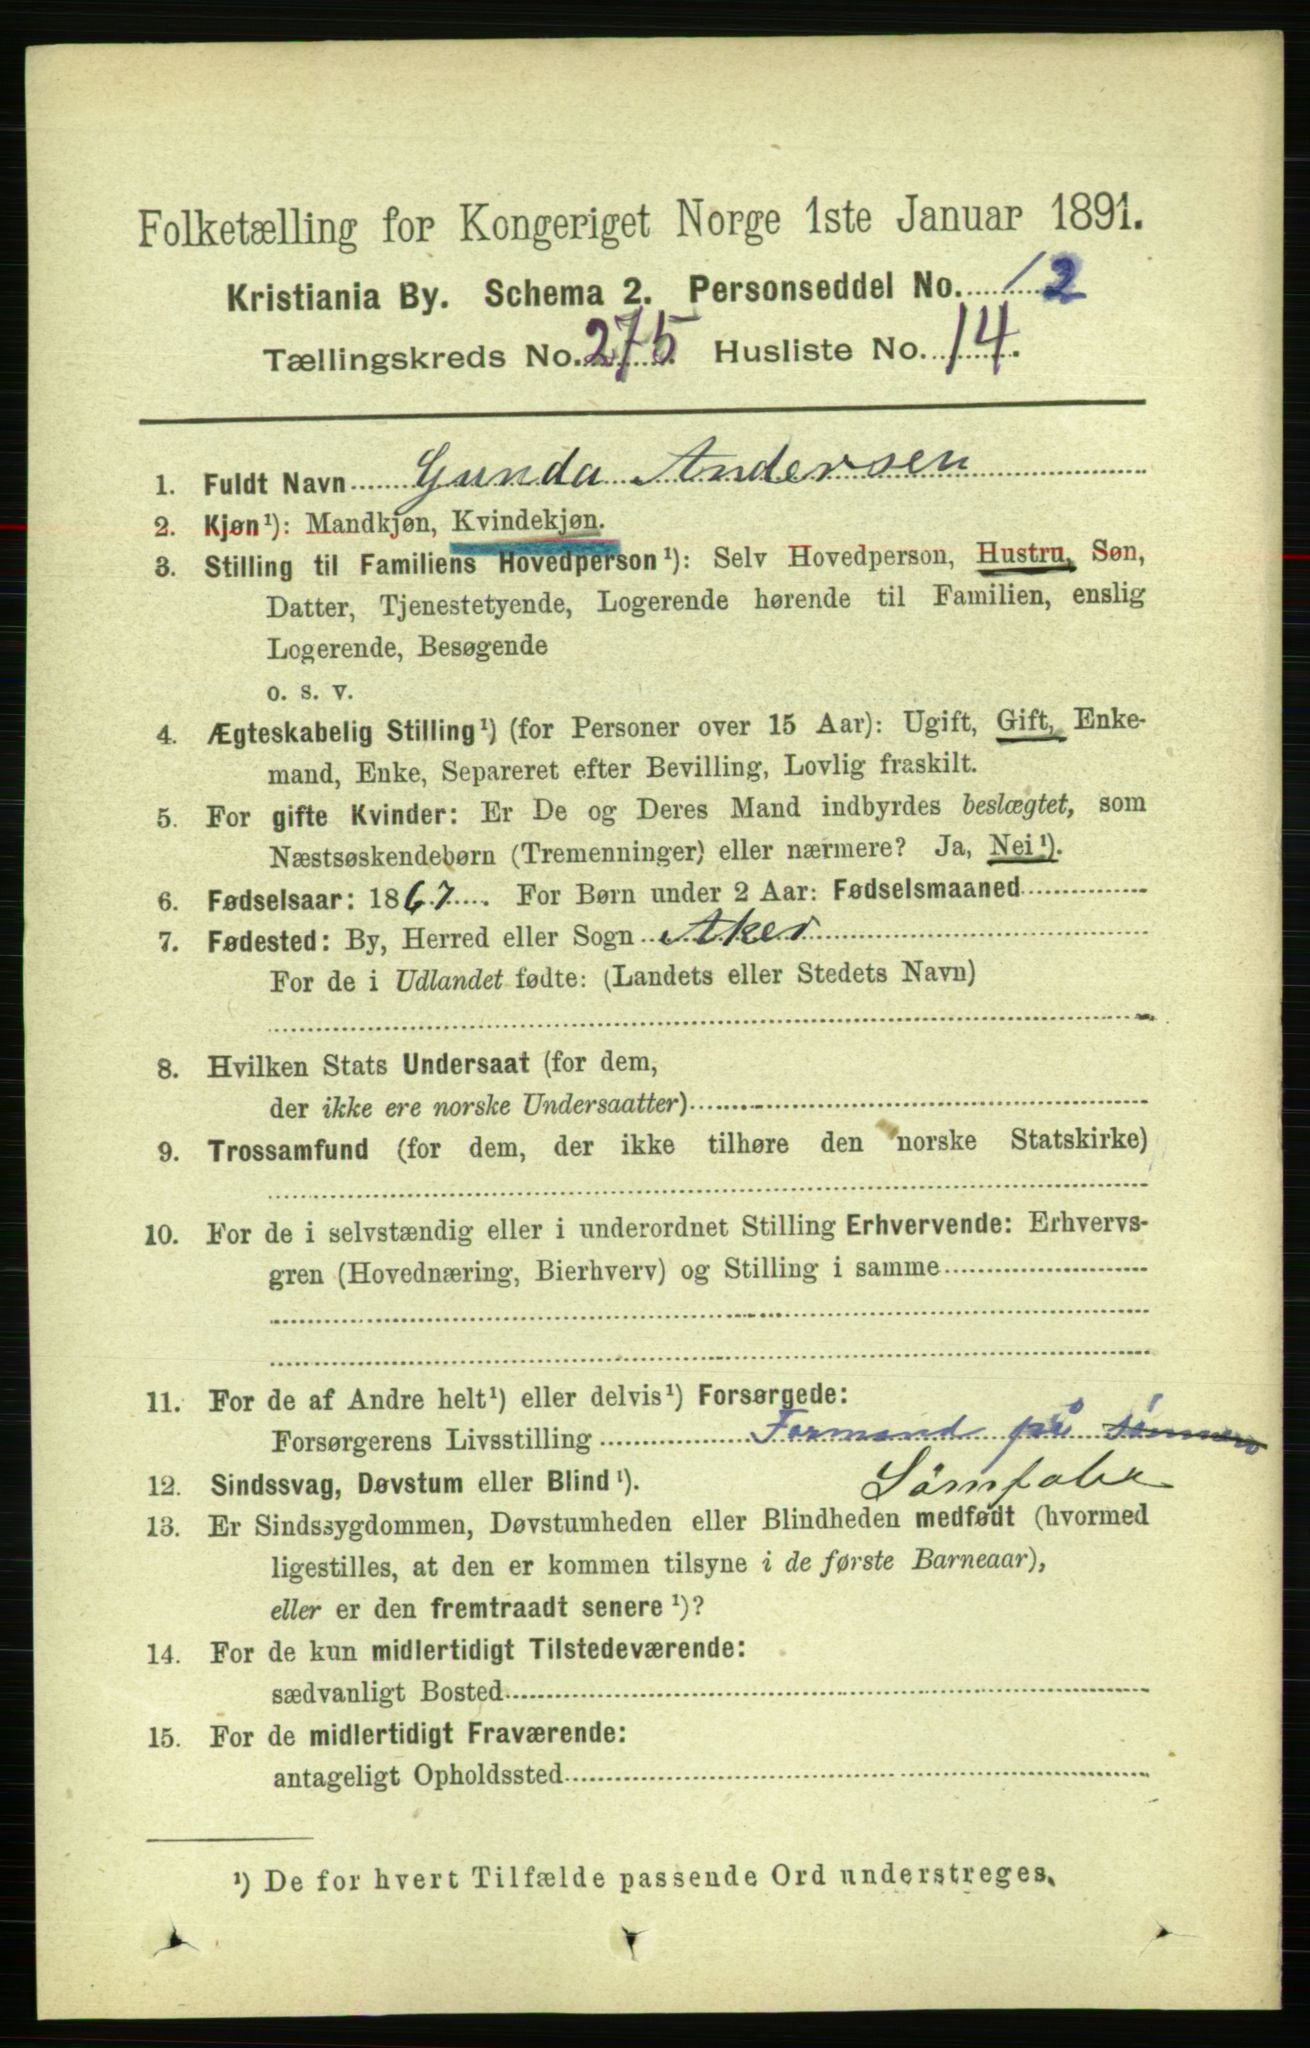 Folketælling for Kongeriget Norge 1ste Januar 1891.
Kristiania By. Schema 2. Personseddel No. 12
Tællingskreds No. 275 Husliste No. 14.
1. Fuldt Navn Gunda Andersen
2. Kjøn¹): Mandkjøn, Kvindekjøn.
3. Stilling til Familiens Hovedperson¹): Selv Hovedperson, Hustru, Søn,
Datter, Tjenestetyende, Logerende hørende til Familien, enslig
Logerende, Besøgende
o. s. v.
4. Ægteskabelig Stilling¹) (for Personer over 15 Aar): Ugift, Gift, Enke-
mand, Enke, Separeret efter Bevilling, Lovlig fraskilt.
5. For gifte Kvinder: Er De og Deres Mand indbyrdes beslægtet, som
Næstsøskendebørn (Tremenninger) eller nærmere? Ja, Nei¹).
6. Fødselsaar: 1867. For Børn under 2 Aar: Fødselsmaaned
7. Fødested: By, Herred eller Sogn Aker
For de i Udlandet fødte: (Landets eller Stedets Navn)
8. Hvilken Stats Undersaat (for dem,
der ikke ere norske Undersaatter)
9. Trossamfund (for dem, der ikke tilhøre den norske Statskirke)
10. For de i selvstændig eller i underordnet Stilling Erhvervende: Erhvervs-
gren (Hovednæring, Bierhverv) og Stilling i samme
11. For de af Andre helt¹) eller delvis¹) Forsørgede:
Forsørgerens Livsstilling Formand på
12. Sindssvag, Døvstum eller Blind¹). Sömfabr
13. Er Sindssygdommen, Døvstumheden eller Blindheden medfødt (hvormed
ligestilles, at den er kommen tilsyne i de første Barneaar),
eller er den fremtraadt senere¹)?
14. For de kun midlertidigt Tilstedeværende:
sædvanligt Bosted
15. For de midlertidigt Fraværende:
antageligt Opholdssted
¹) De for hvert Tilfælde passende Ord understreges.